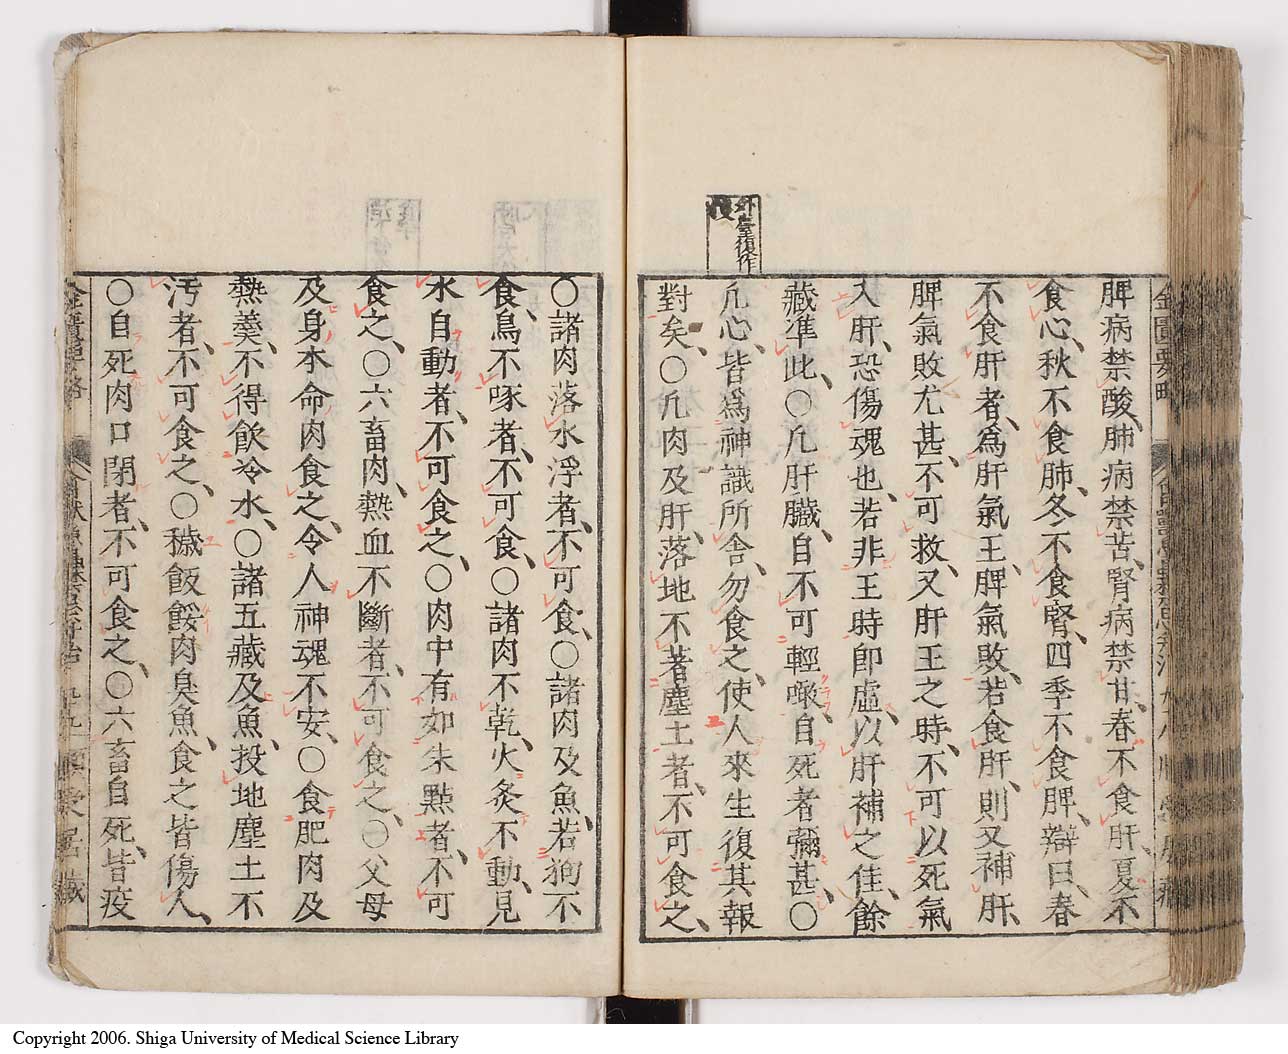 脾病禁酸、肺病禁苦、腎病禁甘、春不食肝、夏不
食心、秋不食肺、冬不食腎、四季不食脾、辯曰、春
不食肝者、爲肝氣王、脾氣敗、若食肝、則又補肝、
脾氣敗尤甚、不可救、又肝王之時、不可以死氣
入肝、恐傷魂也、若非王時即虛、以肝補之佳、餘
藏準此、〇凢肝臟、自不可輕噉、自死者彌甚、〇
外臺復作
凢心、皆爲神識所舎、勿食之、使人來生復其報
對矣、〇凢肉及肝、落地不著塵土者、不可食之、
〇諸肉落水浮者、不可食、〇諸肉及魚、若狗不
食、鳥不啄者、不可食、〇諸肉不乾、火炙不動、見
水自動者、不可食之、〇肉中有如朱點者、不可
食之、〇六畜肉、熱血不斷者、不可食之、〇父母
及身本命肉食之、令人神魂不安、〇食肥肉及
熱羹、不得飮冷水、〇諸五藏及魚、投地塵土不
汚者、不可食之、〇穢飯餒肉臭魚、食之皆傷人、
〇自死肉口閉者、不可食之、〇六畜自死、皆疫
Copyright 2006. Shiga University of Medical Science Library